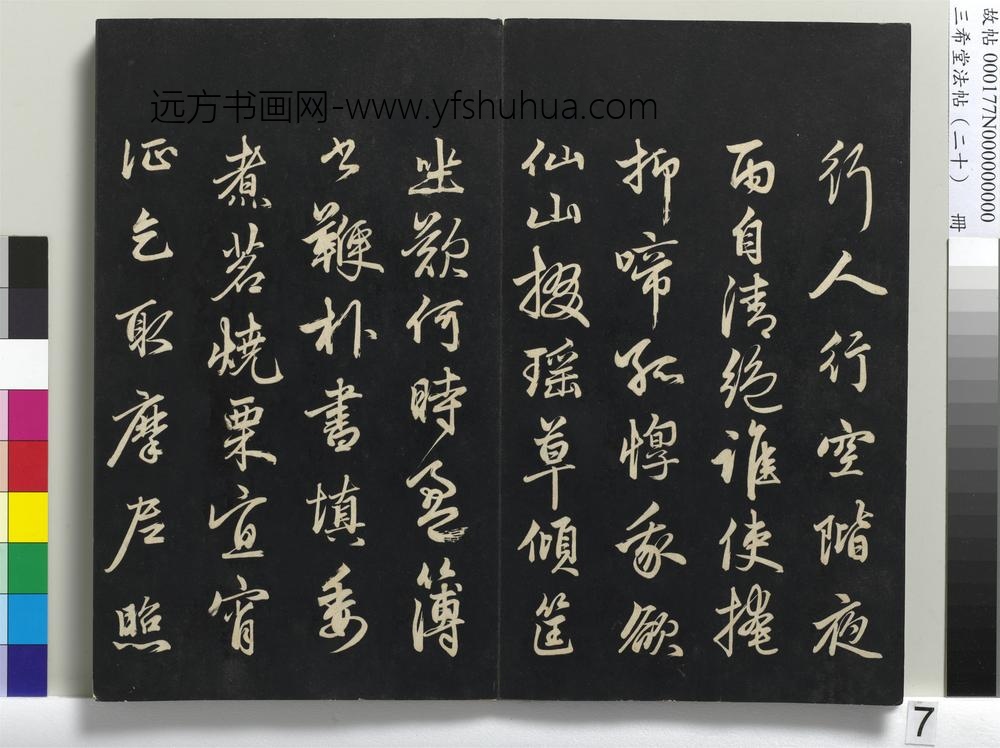 故帖 000177N000000000
三希堂法帖（二十） 冊
远方书画网-www.yfshuhua.com
行人行空階夜
雨自清絕誰使掩
抑啼孤惸我欲
仙山掇瑤草傾筐
坐歎何時盈簿
书鞭朴晝填委
煮茗燒栗宜宵
征乞取摩尼照
7